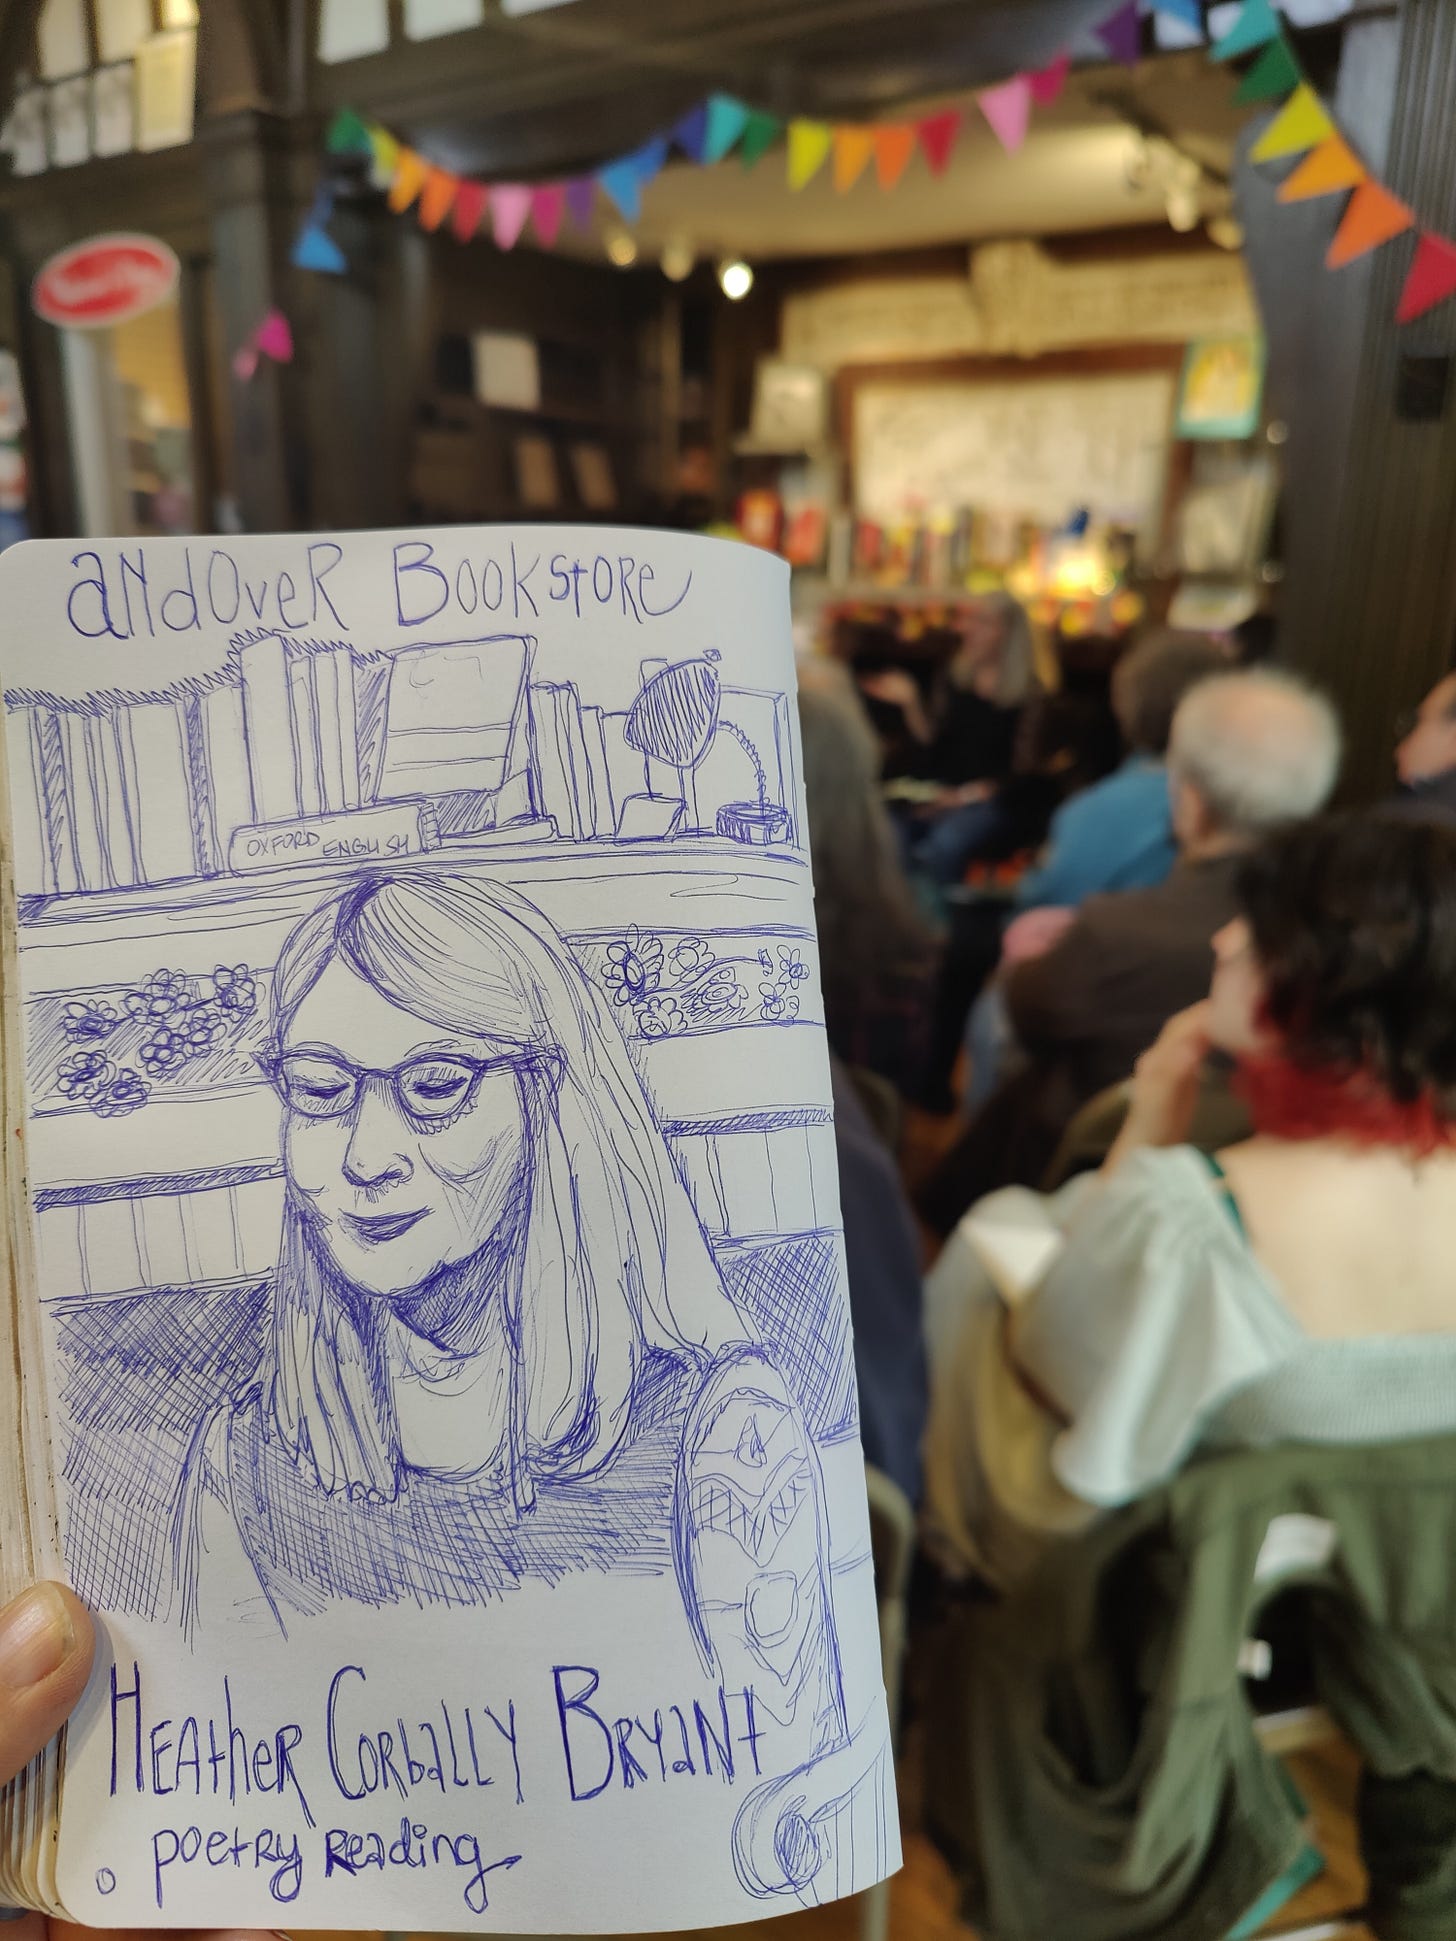 andOveR BookstoRe
OXFORD ENGLISH
HEAtheR CorbaLLY BRYaNt
poetry Reading